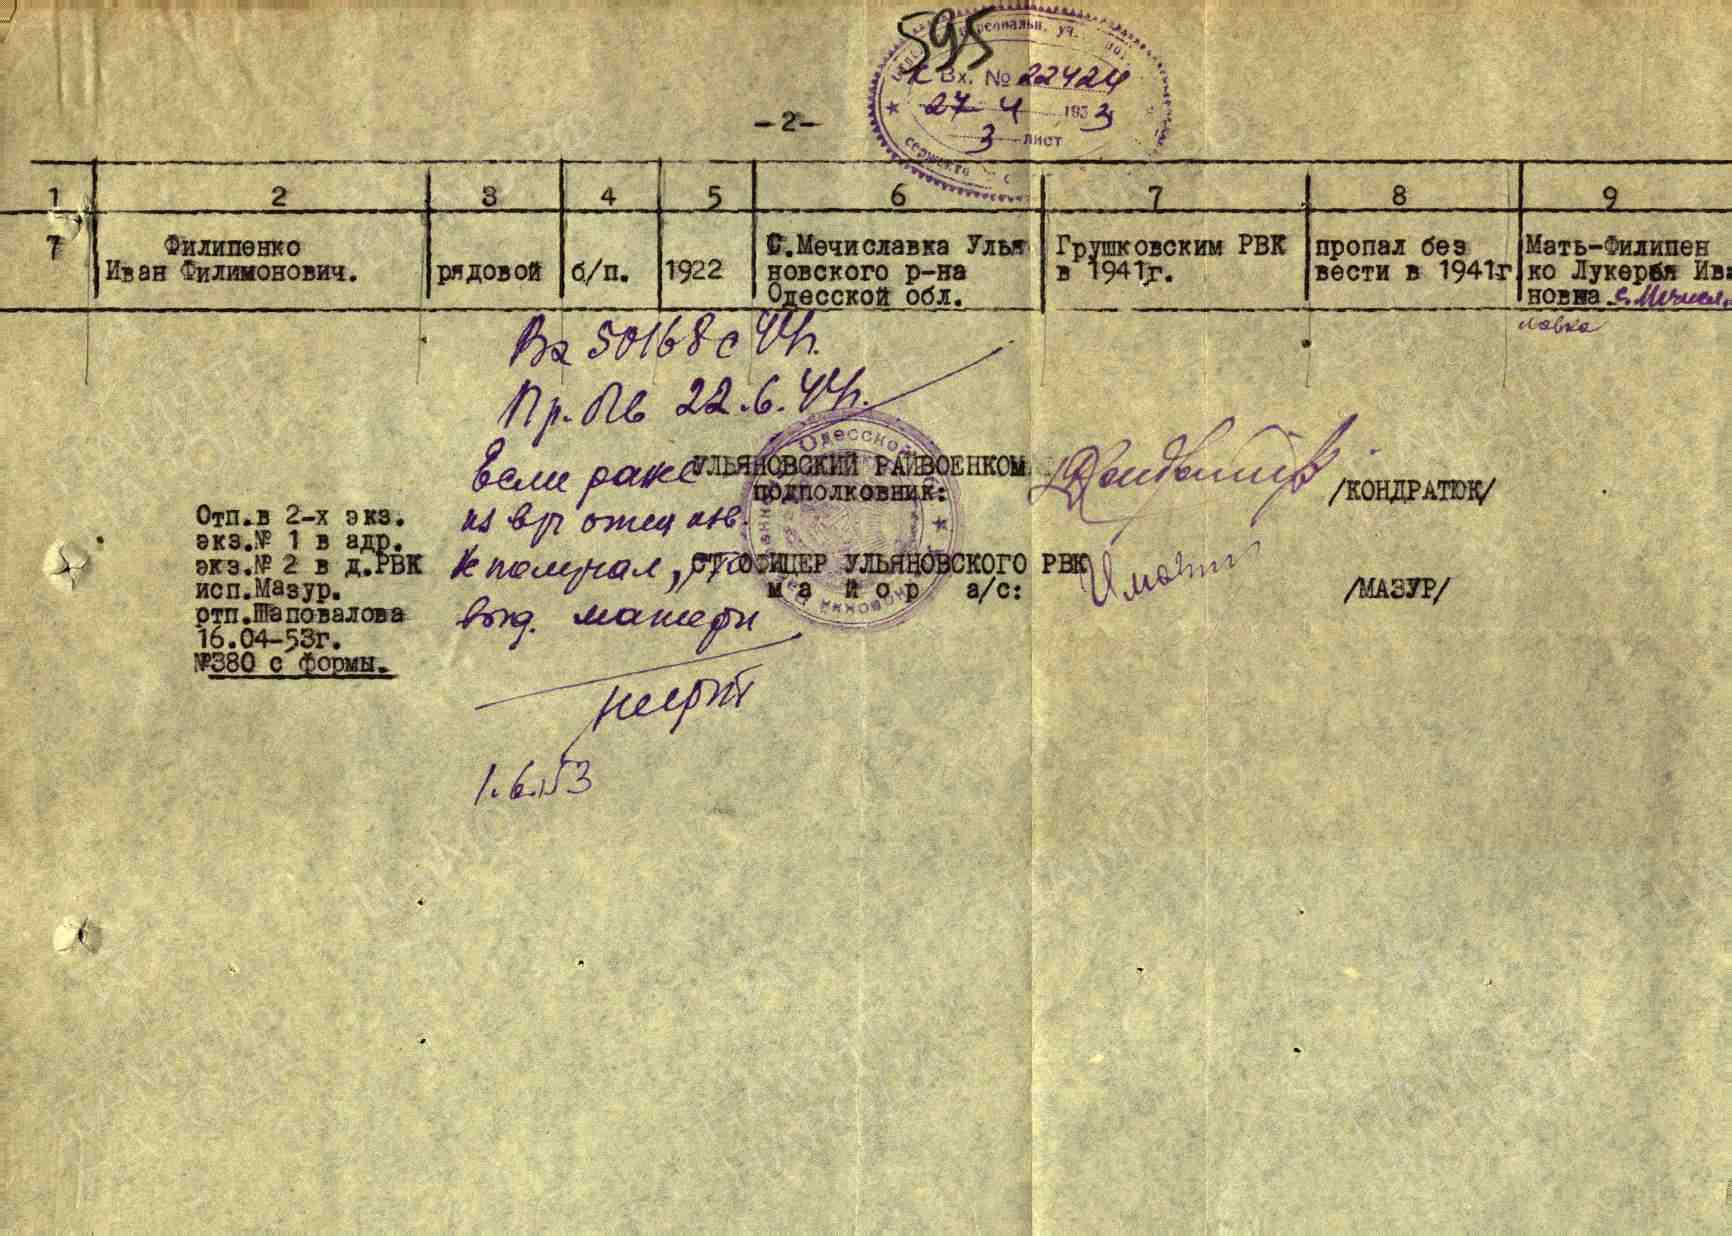 595
к Вх. № 22424
27 4 1953
3 лист
-2-
1 2 3 4 5 6 7 8 9
7 Филипенко
Иван Филимонович.
рядовой
б/п.
1922
С.Мечиславка Улья
новского р-на
Одесской обл.
Грушковским РВК
в 1941г.
пропал без
вести в 1941г
Мать-Филипен
ко Лукерья Ив
новна с. Мечис
лавка
Вх 50168с 44г.
Пр. Пв 22.6.44г.
Если ранее
отец
не получал, то
выд. матери
1.6.53
УЛЬЯНОВСКИЙ РАЙВОЕНКОМ
ПОДПОЛКОВНИК:
/КОНДРАТЮК/
СТ ОФИЦЕР УЛЬЯНОВСКОГО РВК
м а й о р а/с:
/МАЗУР/
Одесской
Отп.в 2-х экз.
экз.№ 1 в адр.
экз.№ 2 в д.РВК
исп.Мазур.
отп.Шаповалова
16.04-53г.
№380 с формы.